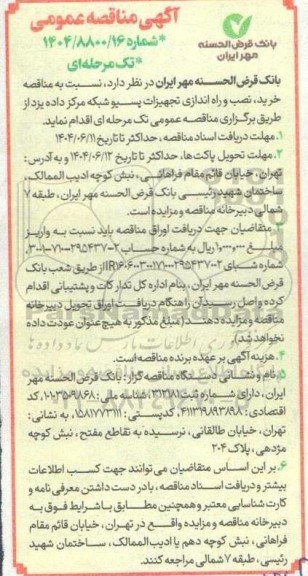 آگهی مناقصه عمومی
*شماره ۱۴۰۴/۸۸۰۰/۱۶*
*تک مرحله‌ای
بانک قرض الحسنه
مهر ایران
بانک قرض الحسـنه مهر ایران در نظر دارد، نسبت به مناقصه
خرید، نصب و راه اندازی تجهیزات پسیو شبکه مرکز داده یزد از
طریق برگزاری مناقصه عمومی تک مرحله ای اقدام نماید.
۱. مهلت دریافت اسناد مناقصه، حداکثر تا تاریخ ۱۴۰۴/۰۶/۱۱
۲. مهلت تحویل پاکت‌ها، حداکثر تا تاریخ ۱۴۰۴/۰۶/۱۲ و به آدرس:
تهران، خیابان قائم مقام فراهانی، نبش کوچه ادیب الممالک،
ساختمان شهید رئیسی بانک قرض الحسنه مهر ایران، طبقه ۷
شمالی دبیرخانه مناقصه و مزایده است.
۳. متقاضیان جهت دریافت اوراق مناقصه باید نسبت به واریز
مبلغ ۱,۰۰۰,۰۰۰ ریال به شماره حساب
شماره شبای از طریق شعب بانک
قرض الحسنه مهر ایران، بنام اداره کل تدارکات و پشتیبانی اقدام
کرده و اصل رسید آن را هنگام دریافت اوراق تحویل دبیرخانه
مناقصه و مزایده دهند (مبلغ مذکور به هیچ عنوان عودت داده
نخواهد شد).
۴. هزینه آگهی بر عهده برنده مناقصه است.
۵. نام و نشـانی دستگاه مناقصه گزار: بانک قرض الحسنه مهر
ایران، دارای شماره ثبت ۳۲۲۸۷۱، شناسه ملی: ۱۰۱۰۳۵۹۸۶۸، کد
اقتصادی: ۴۱۱۳۱۹۸۹۳۸۹۸، کدپستی: ۱۵۸۱۷۷۳۱۱۱، به نشانی:
تهران، خیابان طالقانی، نرسیده به تقاطع مفتح، نبش کوچه
مژدهی، پلاک ۲۰۴
۶. بر این اساس متقاضیان می توانند جهت کسب اطلاعات
بیشتر و دریافت اسناد مناقصه، با در دست داشتن معرفی نامه و
کارت شناسایی معتبر و همچنین مطابق با شرایط فوق به
دبیرخانه مناقصه و مزایده واقع در تهران، خیابان قائم مقام
فراهانی، نبش کوچه دهم یا ادیب الممالک، ساختمان شهید
رئیسی، طبقه ۷ شمالی مراجعه کنند.